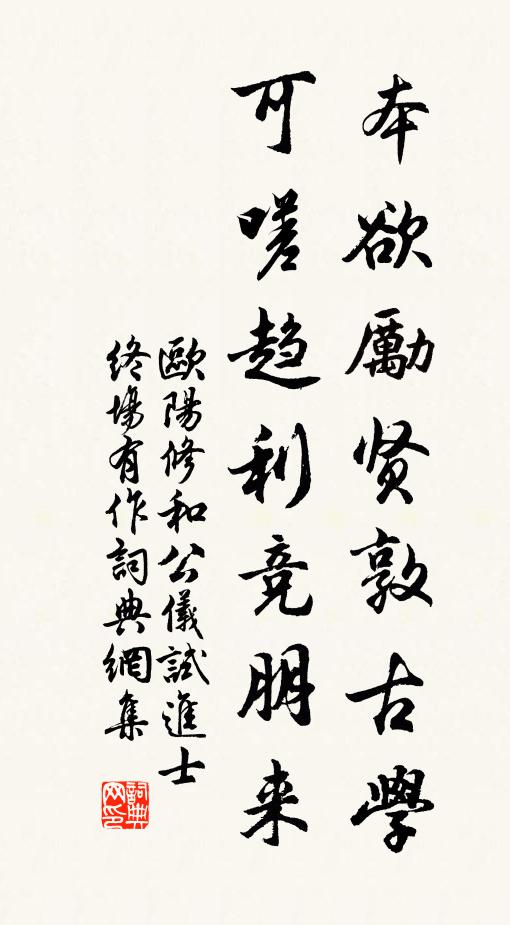 本欲勵贤敦古學
可嗟趋利竞朋来
歐陽修和公儀試進士
終場有作詞典網集
詞典网印